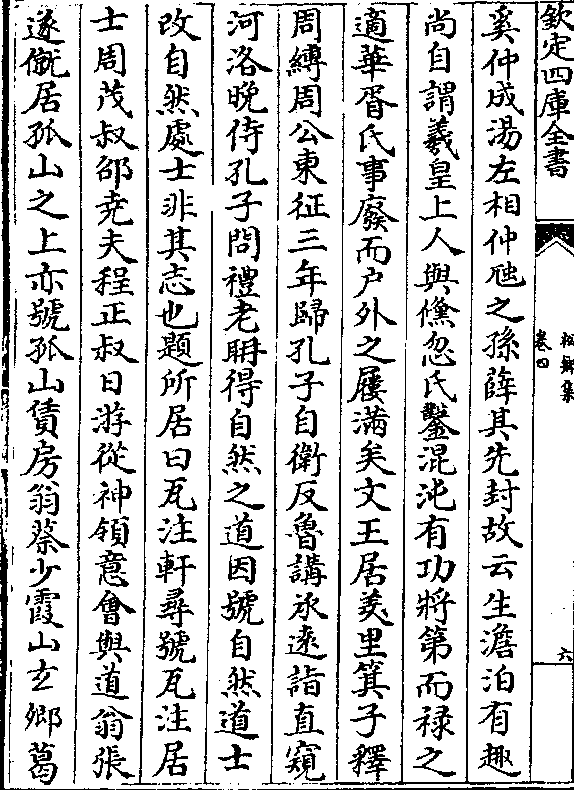 欽定四庫全書
松鄉集
卷四
六
奚仲成湯左相仲虺之孫薛其先封故云生澹泊有趣
尚自謂羲皇上人與儵忽氏鑿混沌有功將第而禄之
適華胥氏事廢而户外之屨滿矣文王居羑里箕子釋
周縛周公東征三年歸孔子自衛反魯講求遠詣直窺
河洛晚侍孔子問禮老聃得自然之道因號自然道士
改自然處士非其志也題所居曰瓦注軒尋號瓦注居
士周茂叔邵尭夫程正叔日游從神領意會與道翁張
遂僦居孤山之上亦號孤山賃房翁蔡少霞山玄卿葛